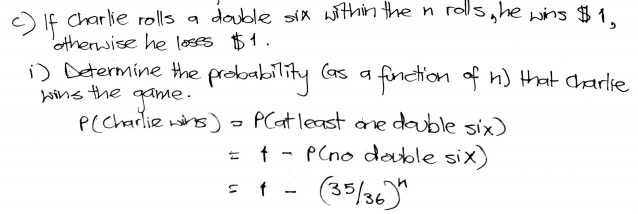 c) If Charlie rolls a double six within the n rolls, he wins $1,
otherwise he loses $1.
i) Determine the probability (as a function of n) that Charlie
wins the game.
P(Charlie wins) = P(at least one double six)
= 1 - P(no double six)
= 1 - (35/36)^n